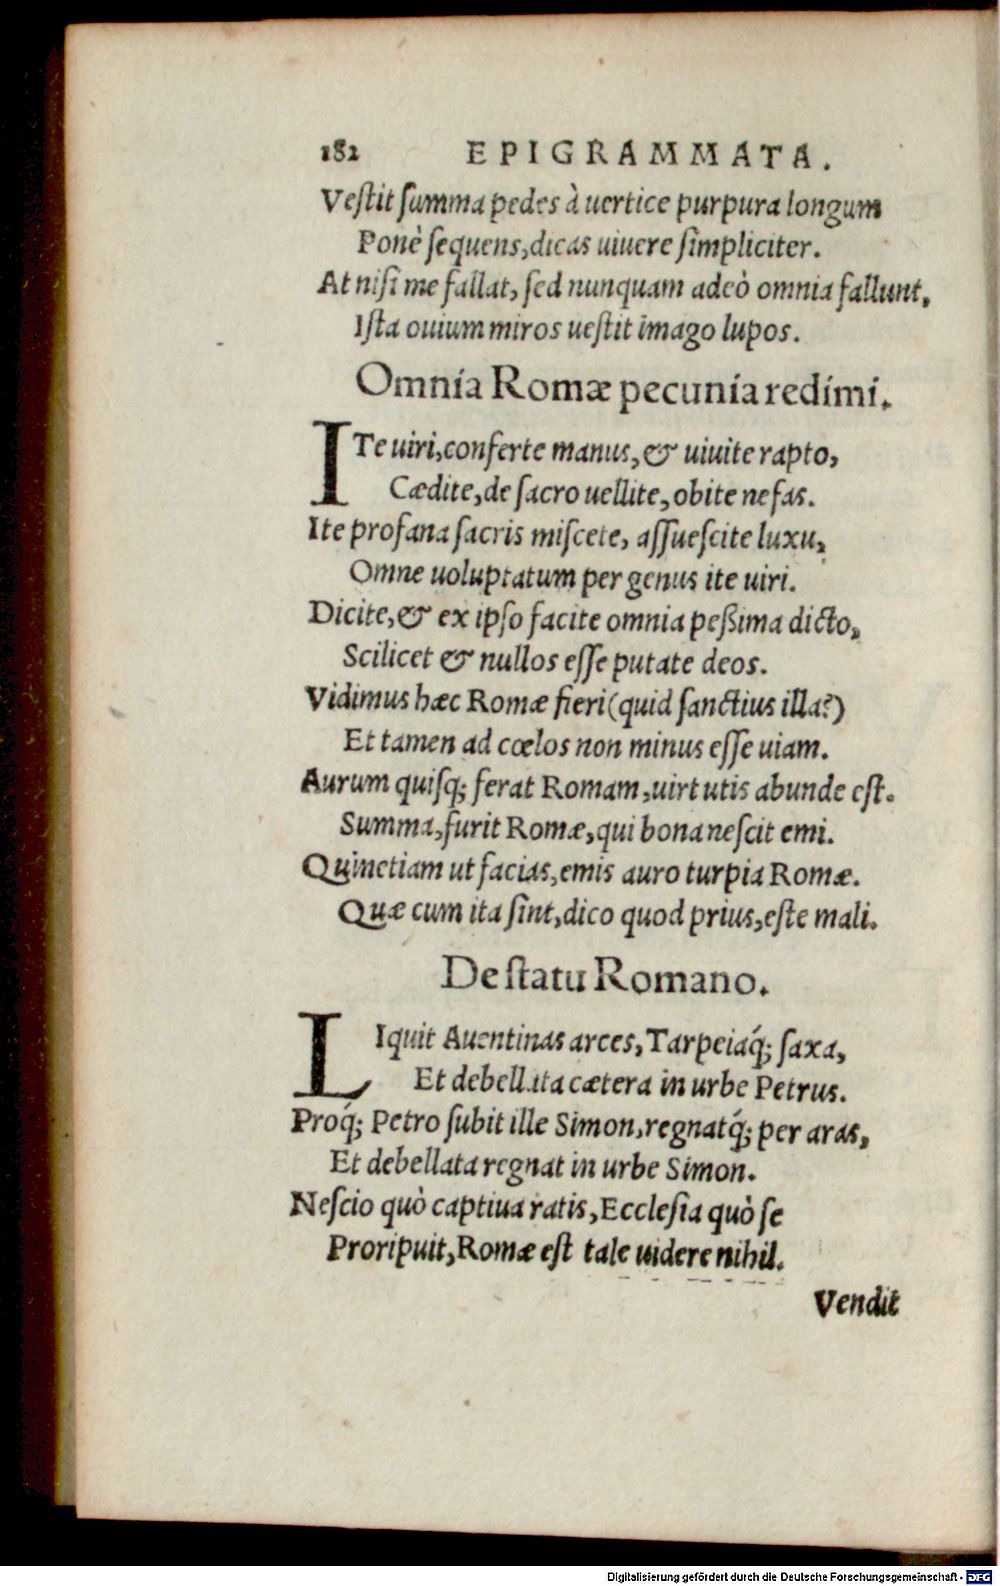 182 EPIGRAMMATA.
Vestit summa pedes à uertice purpura longum
Ponè sequens, dicas uiuere simpliciter.
At nisi me fallat, sed nunquam adeò omnia fallunt,
Ista ouium miros uestit imago lupos.
Omnia Romæ pecunia redimi.
ITe uiri, conferte manus, & uiuite rapto,
Cædite, de sacro uellite, obite nefas.
Ite profana sacris miscete, assuescite luxu,
Omne uoluptatum per genus ite uiri.
Dicite, & ex ipso facite omnia peßima dicto,
Scilicet & nullos esse putate deos.
Vidimus hæc Romæ fieri (quid sanctius illa?)
Et tamen ad cœlos non minus esse uiam.
Aurum quisq; ferat Romam, uirtutis abunde est.
Summa, furit Romæ, qui bona nescit emi.
Quinetiam ut facias, emis auro turpia Romæ.
Quæ cum ita sint, dico quod prius, este mali.
De statu Romano.
LIquit Auentinas arces, Tarpeiaq́; saxa,
Et debellata cætera in urbe Petrus.
Proq́; Petro subit ille Simon, regnatq́; per aras,
Et debellata regnat in urbe Simon.
Nescio quò captiua ratis, Ecclesia quò se
Proripuit, Romæ est tale uidere nihil.
Vendit
Digitalisierung gefördert durch die Deutsche Forschungsgemeinschaft - DFG